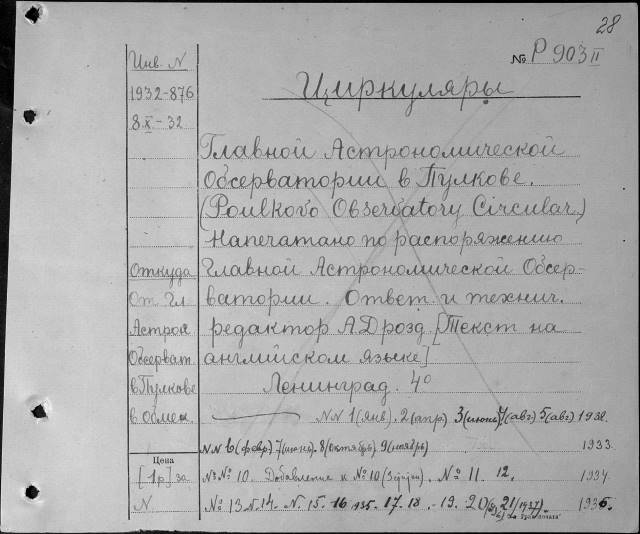 28
№ P 903 II
Инв. N
Циркуляры
1932-876
8.X-32
Главной Астрономической
Обсерватории в Пулкове.
(Poulkovo Observatory Circular.)
Напечатано по распоряжению
Откуда
Главной Астрономической Обсер-
От Гл
ватории. Ответ. и технич.
Астрон
редактор А. Дрозд. [Текст на
Обсерват
английском языке]
в Пулкове
Ленинград. 4°
в обмен.
NN 1 (янв). 2 (апр) 3 (июнь) 4 (авг) 5 (авг) 1932.
NN 6 (февр) 7 (июнь). 8 (октябрь) 9 (ноябрь) 1933.
Цена
[1 р] за
№№ 10. Добавление к № 10 № 11. 12. 1934
N
№ 13. N. 14. N. 15. 16 1935. 17. 18. 19. 20 21 (1937). 1936.